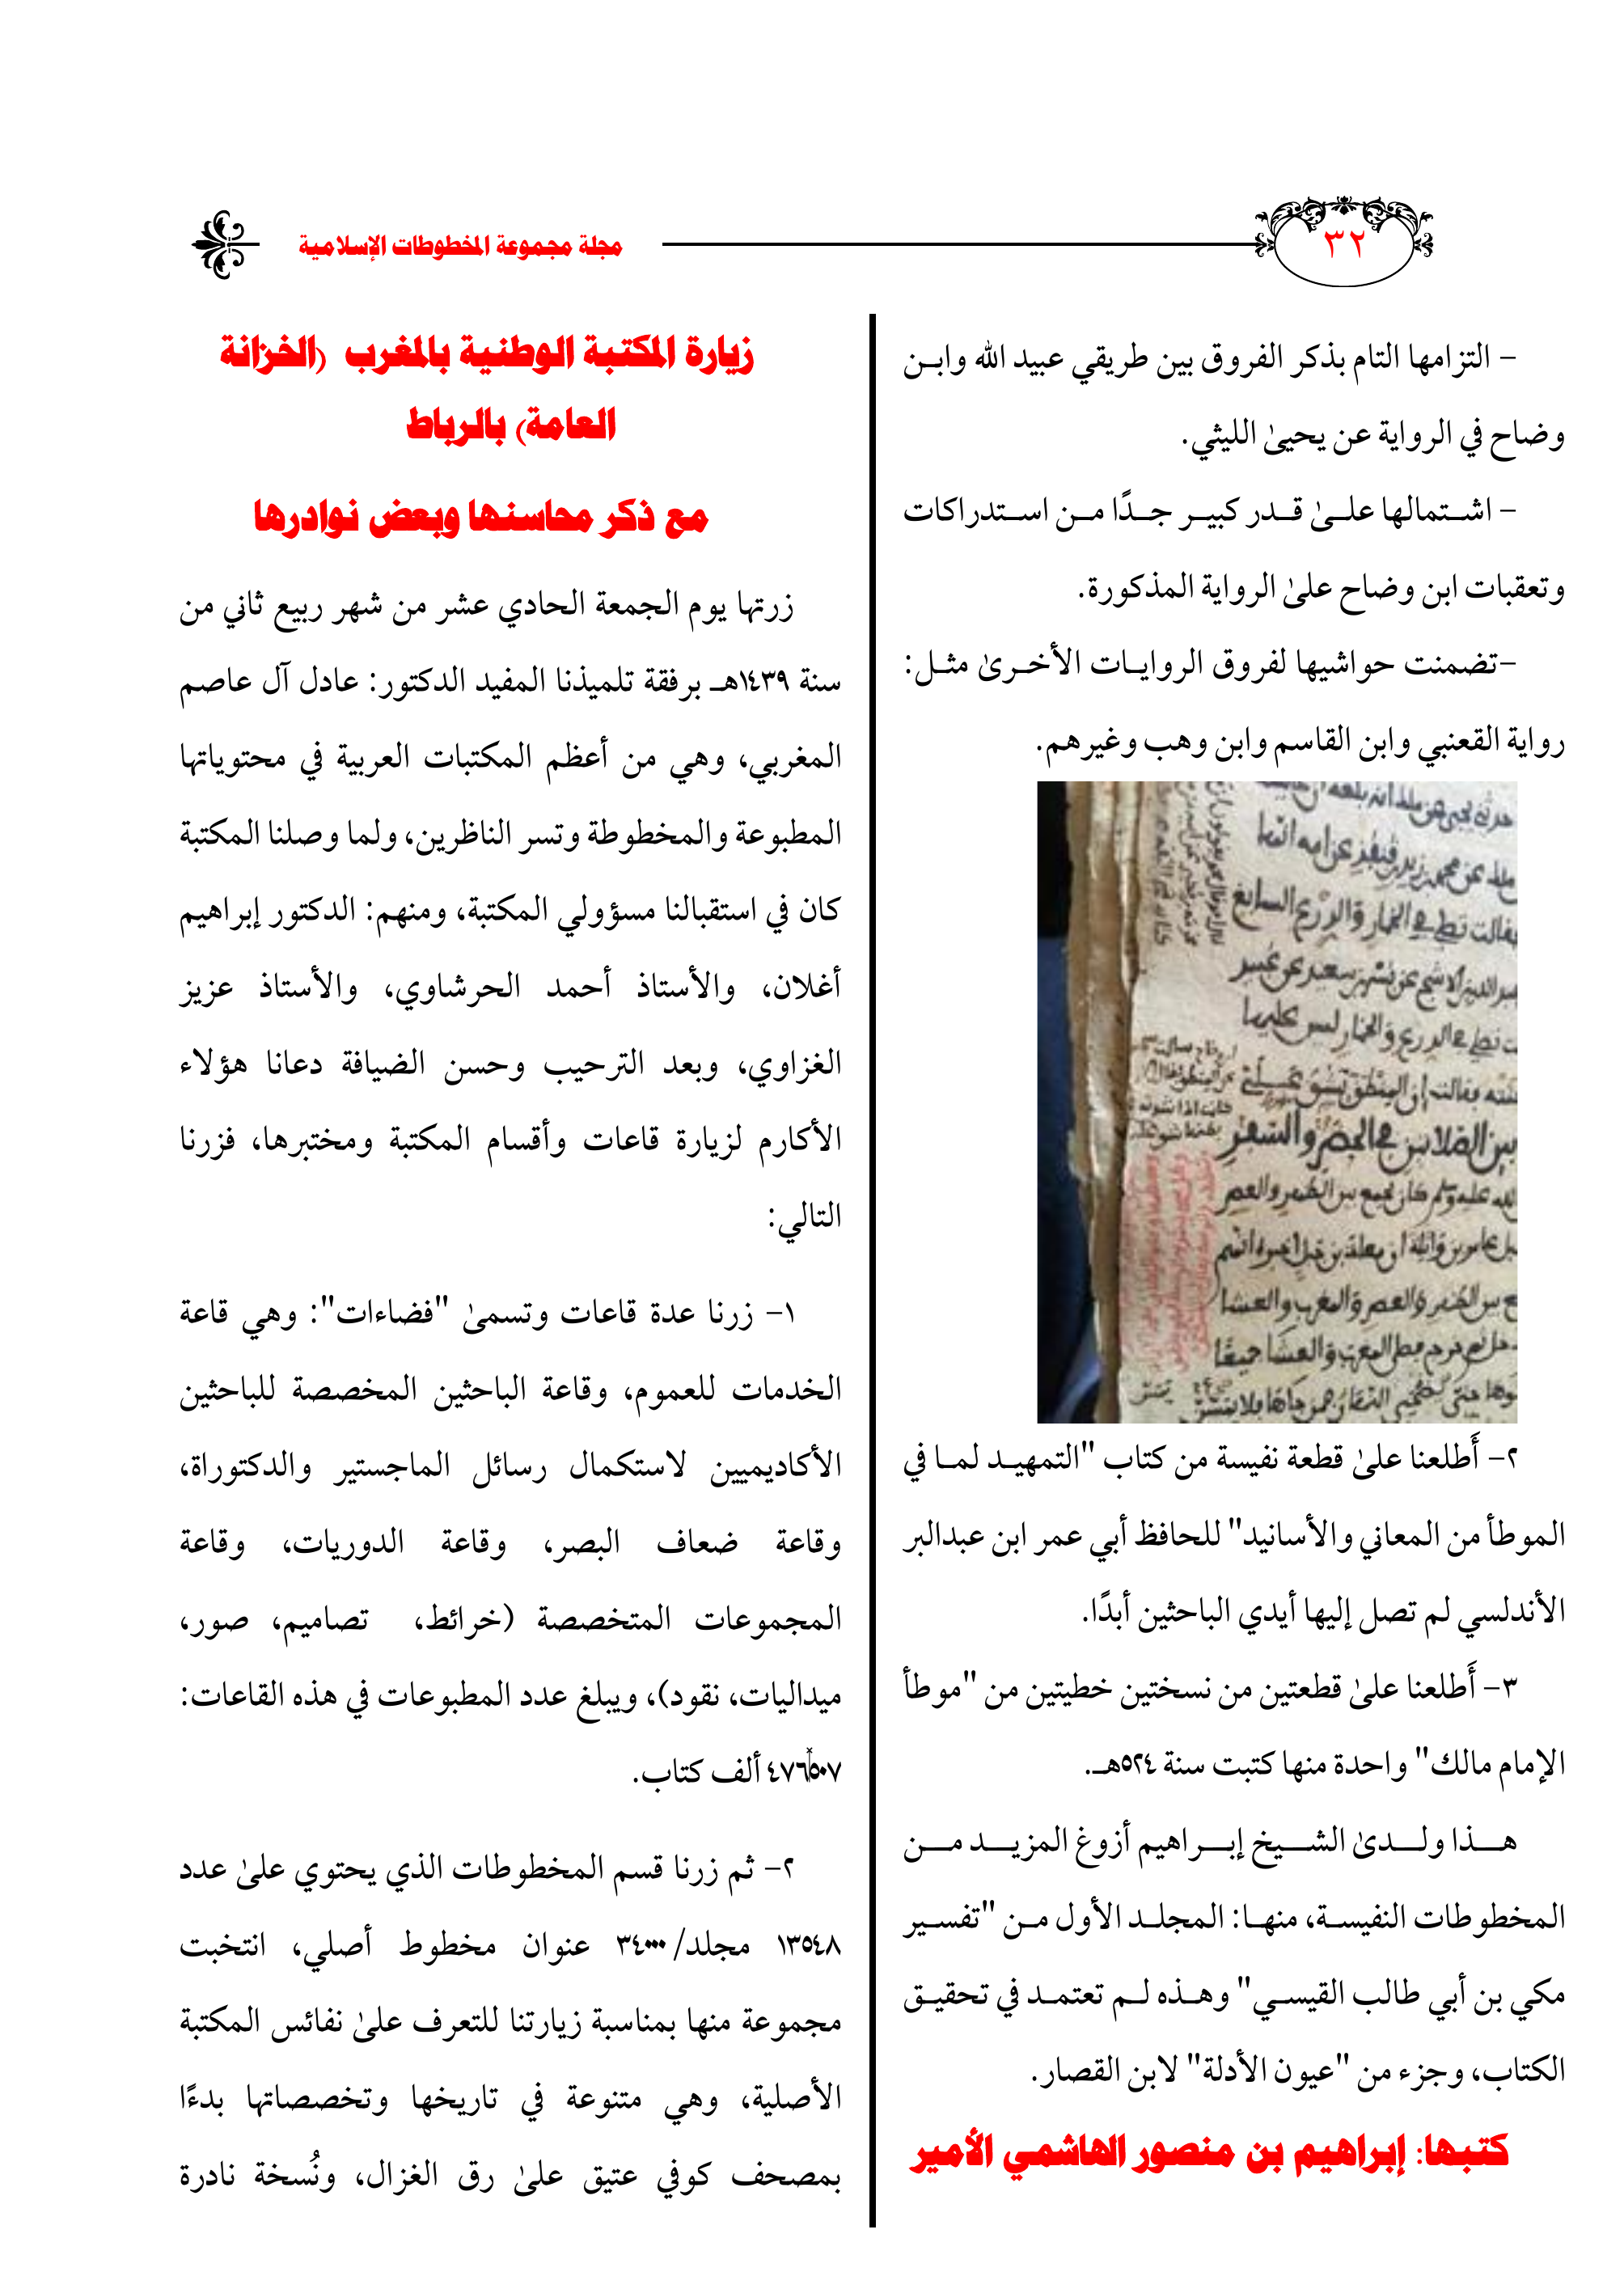 ٣٢
مجلة مجموعة المخطوطات الإسلامية
- التزامها التام بذكر الفروق بين طريقي عبيد الله وابن
وضاح في الرواية عن يحيىٰ الليثي.
- اشتمالها علىٰ قدر كبير جدًا من استدراكات
وتعقبات ابن وضاح علىٰ الرواية المذكورة.
-تضمنت حواشيها لفروق الروايات الأخرىٰ مثل:
رواية القعنبي وابن القاسم وابن وهب وغيرهم.
بين الصلاتين في الحضر والسفر
٢- أَطلعنا علىٰ قطعة نفيسة من كتاب "التمهيد لما في
الموطأ من المعاني والأسانيد" للحافظ أبي عمر ابن عبدالبر
الأندلسي لم تصل إليها أيدي الباحثين أبدًا.
٣- أَطلعنا علىٰ قطعتين من نسختين خطيتين من "موطأ
الإمام مالك" واحدة منها كتبت سنة ٥٢٤هـ.
هذا ولدىٰ الشيخ إبراهيم أزوغ المزيد من
المخطوطات النفيسة، منها: المجلد الأول من "تفسير
مكي بن أبي طالب القيسي" وهذه لم تعتمد في تحقيق
الكتاب، وجزء من "عيون الأدلة" لابن القصار.
كتبها: إبراهيم بن منصور الهاشمي الأمير
زيارة المكتبة الوطنية بالمغرب (الخزانة
العامة) بالرباط
مع ذكر محاسنها وبعض نوادرها
زرتها يوم الجمعة الحادي عشر من شهر ربيع ثاني من
سنة ١٤٣٩هـ برفقة تلميذنا المفيد الدكتور: عادل آل عاصم
المغربي، وهي من أعظم المكتبات العربية في محتوياتها
المطبوعة والمخطوطة وتسر الناظرين، ولما وصلنا المكتبة
كان في استقبالنا مسؤولي المكتبة، ومنهم: الدكتور إبراهيم
أغلان، والأستاذ أحمد الحرشاوي، والأستاذ عزيز
الغزاوي، وبعد الترحيب وحسن الضيافة دعانا هؤلاء
الأكارم لزيارة قاعات وأقسام المكتبة ومختبرها، فزرنا
التالي:
١- زرنا عدة قاعات وتسمىٰ "فضاءات": وهي قاعة
الخدمات للعموم، وقاعة الباحثين المخصصة للباحثين
الأكاديميين لاستكمال رسائل الماجستير والدكتوراة،
وقاعة ضعاف البصر، وقاعة الدوريات، وقاعة
المجموعات المتخصصة (خرائط، تصاميم، صور،
ميداليات، نقود)، ويبلغ عدد المطبوعات في هذه القاعات:
ألف كتاب.
٢- ثم زرنا قسم المخطوطات الذي يحتوي علىٰ عدد
١٣٥٤٨ مجلد/ ٣٤٠٠٠ عنوان مخطوط أصلي، انتخبت
مجموعة منها بمناسبة زيارتنا للتعرف علىٰ نفائس المكتبة
الأصلية، وهي متنوعة في تاريخها وتخصصاتها بدءًا
بمصحف كوفي عتيق علىٰ رق الغزال، ونُسخة نادرة